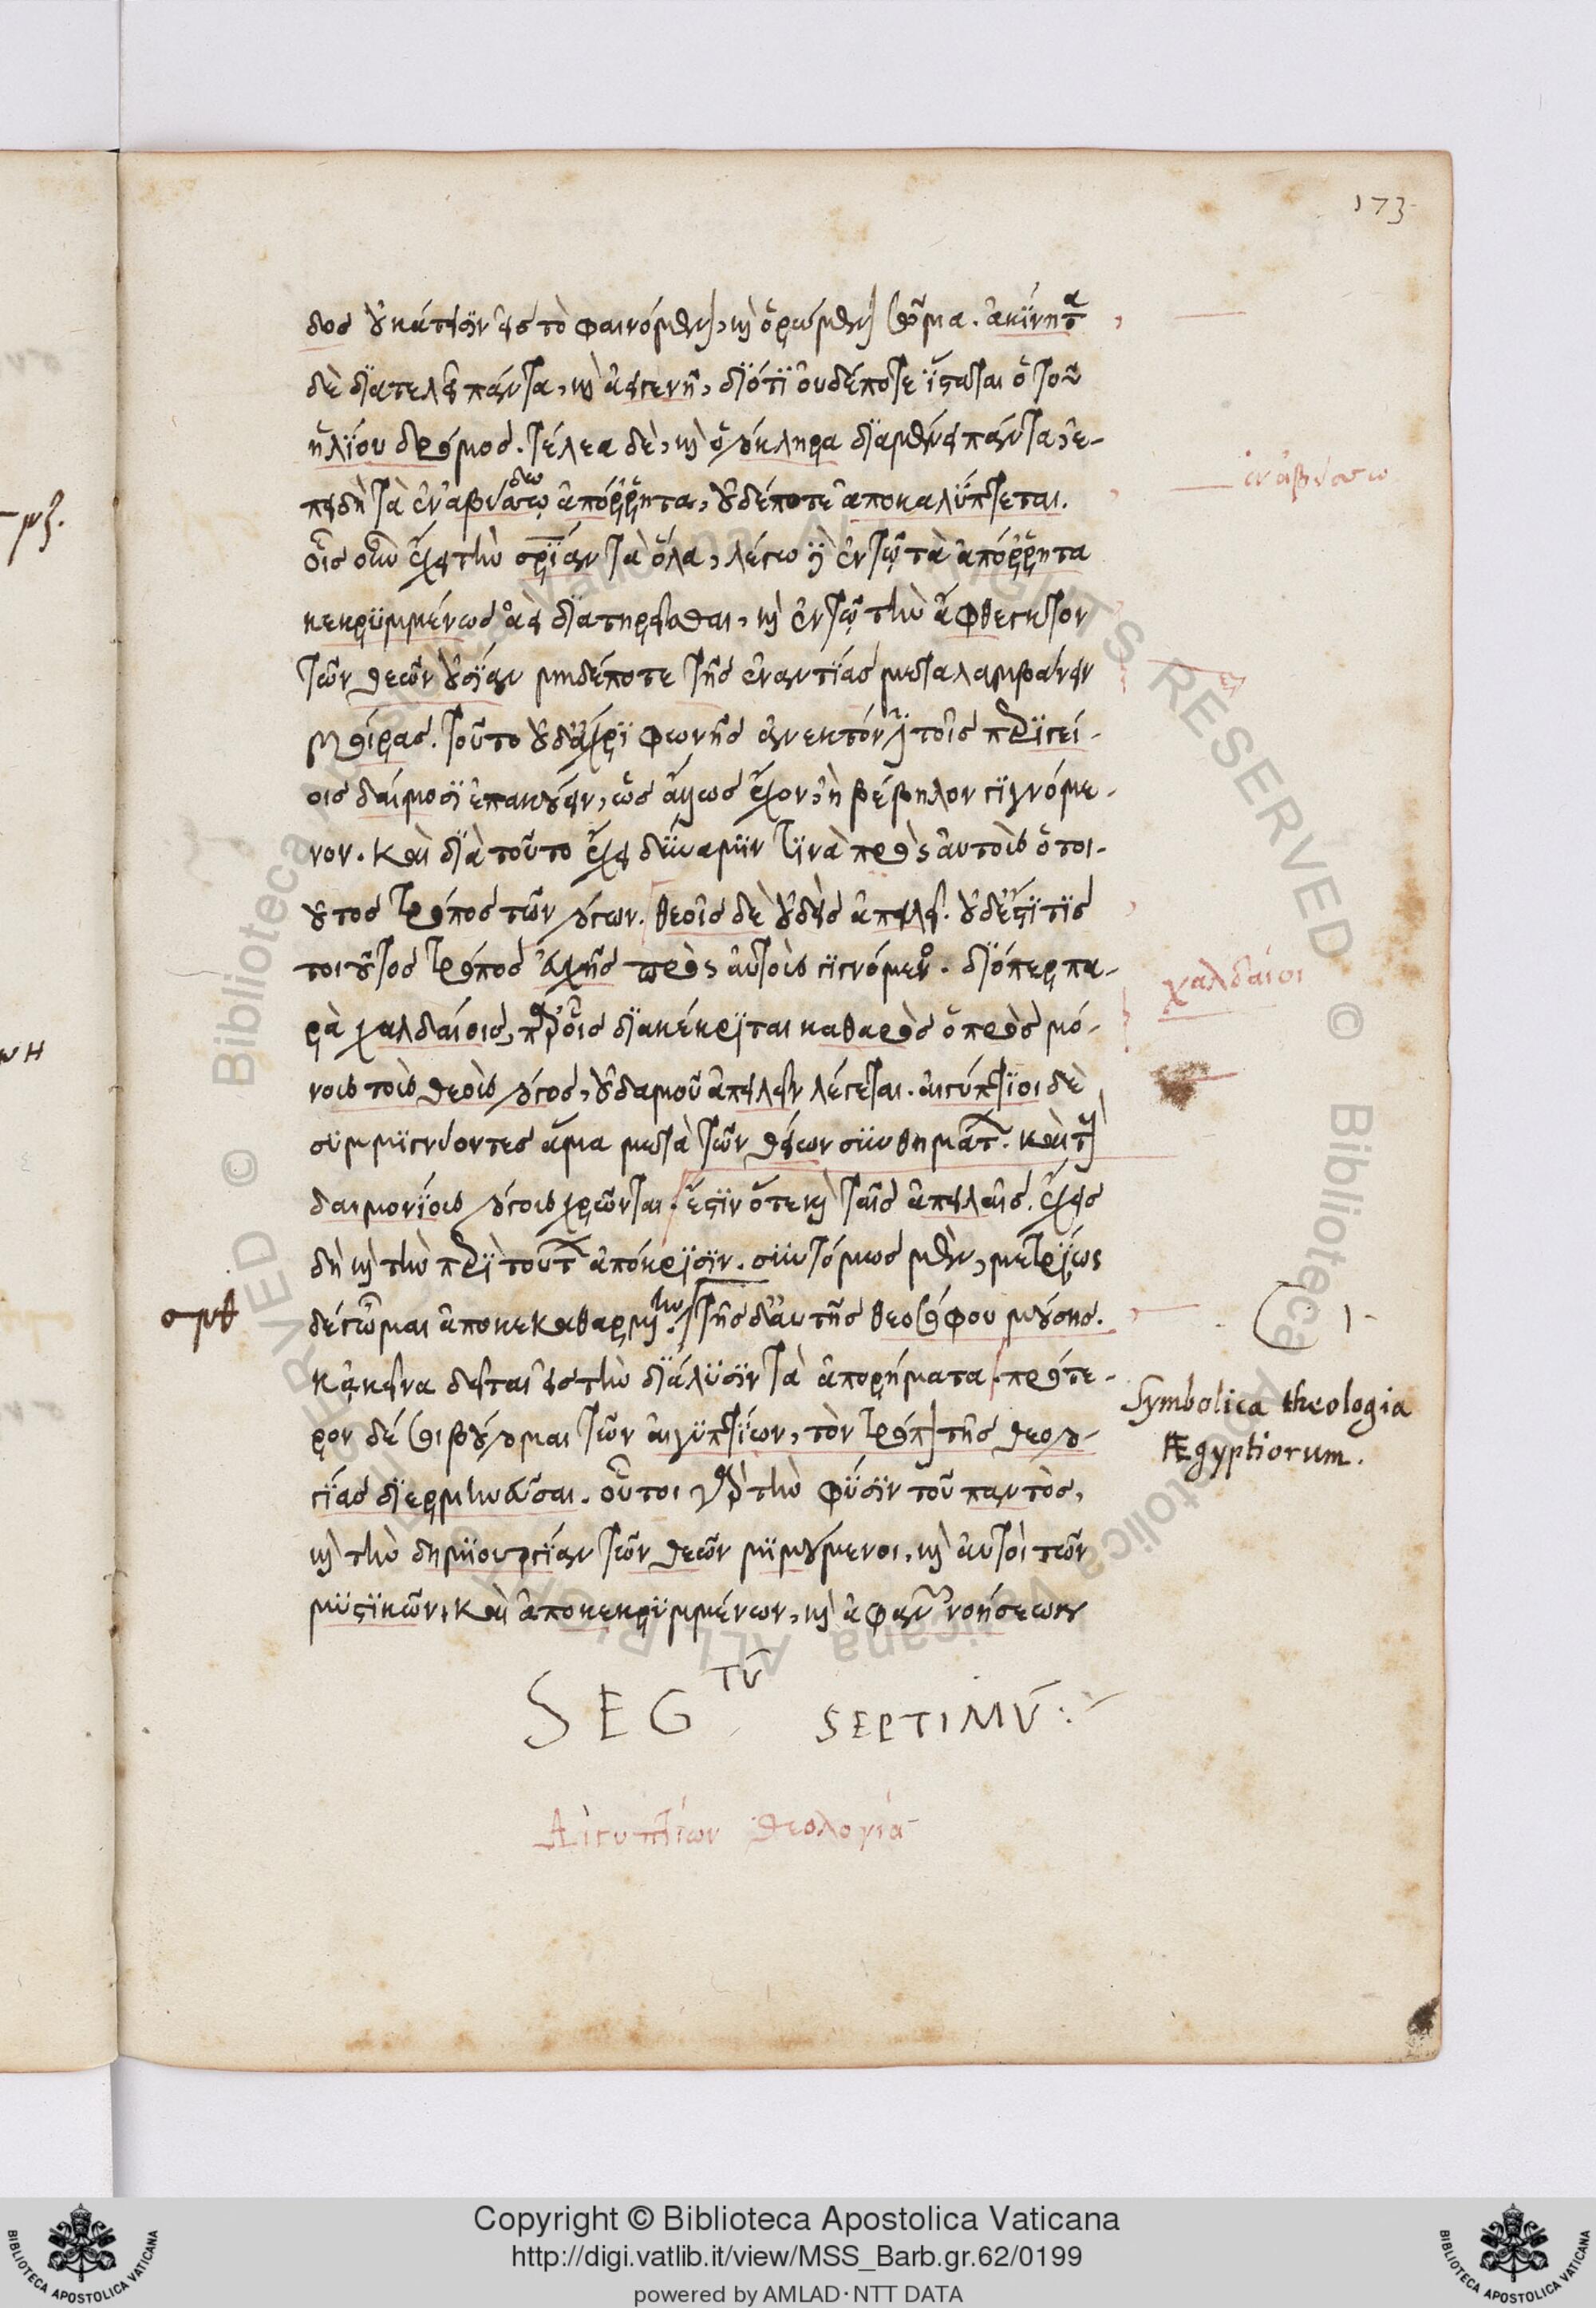 173
δος οὐ κάτεισιν εἰς τὸ φαινόμενον, καὶ ὁρώμενον σῶμα. ἀκίνητα
δὲ διατελεῖ πάντα, καὶ ἀειγενῆ, διότι οὐδέποτε ἵσταται ὁ τοῦ
ἡλίου δρόμος. τέλεα δὲ, καὶ ὁλόκληρα διαμένει πάντα, ἐ-
πειδὴ τὰ ἐν ἀβύσσῳ ἀπόρρητα, οὐδέποτε ἀποκαλύπτεται.
οἷς οὖν ἔχει τὴν σωτηρίαν τὰ ὅλα, λέγω δὲ ἐν τῷ τὰ ἀπόρρητα
κεκρυμμένως ἀεὶ διατηρεῖσθαι, καὶ ἐν τῷ τὴν ἄφθεγκτον
τῶν θεῶν οὐσίαν μηδέποτε τῆς ἐναντίας μεταλαμβάνειν
μοίρας. τοῦτο οὐδ' ἄχρι φωνῆς ἀνεκτόν ἐστι τοῖς περιγεί-
οις δαίμοσιν ἐπακούειν, ὡς ἄλλως ἔχον, ἢ βέβηλον γιγνόμε-
νον. καὶ διὰ τοῦτο ἔχει δύναμιν τινὰ πρὸς αὐτοὺς ὁ τοι-
οῦτος τρόπος τῶν λόγων. θεοῖς δὲ οὐδεὶς ἀπειλεῖ. οὐδέ ἐστί τις
τοιοῦτος τρόπος εὐχῆς πρὸς αὐτοὺς γιγνόμενος. διόπερ πα-
ρὰ χαλδαίοις, παρ' οἷς διακέκριται καθαρὸς ὁ πρὸς μό-
νους τοὺς θεοὺς λόγος, οὐδαμοῦ ἀπειλὴν λέγεται. αἰγύπτιοι δὲ
συμμιγνύοντες ἅμα μετὰ τῶν θείων συνθημάτων. καὶ τοὺς
δαιμονίους λόγους χρῶνται ἔστιν ὅτε καὶ ταῖς ἀπειλαῖς. ἔχεις
δὴ καὶ τὴν περὶ τούτων ἀπόκρισιν. συντόμως μὲν, μετρίως
κἀκεῖνα δεῖται εἰς τὴν διάλυσιν τὰ ἀπορήματα. πρότε-
ρον δέ σοι βούλομαι τῶν αἰγυπτίων, τὸν τρόπον τῆς θεολο-
γίας διερμηνεῦσαι. οὗτοι γὰρ τὴν φύσιν τοῦ παντὸς,
καὶ τὴν δημιουργίαν τῶν θεῶν μιμούμενοι, καὶ αὐτοὶ τῶν
μυστικῶν, καὶ ἀποκεκρυμμένων, καὶ ἀφανῶν νοήσεων
SEGTŪ SEPTIMŪ
Αἰγυπτίων θεολογία
ἐν ἀβύσσω
χαλδαίοι
Symbolica theologia
Ægyptiorum.
Copyright © Biblioteca Apostolica Vaticana
http://digi.vatlib.it/view/MSS_Barb.gr.62/0199
powered by AMLAD·NTT DATA